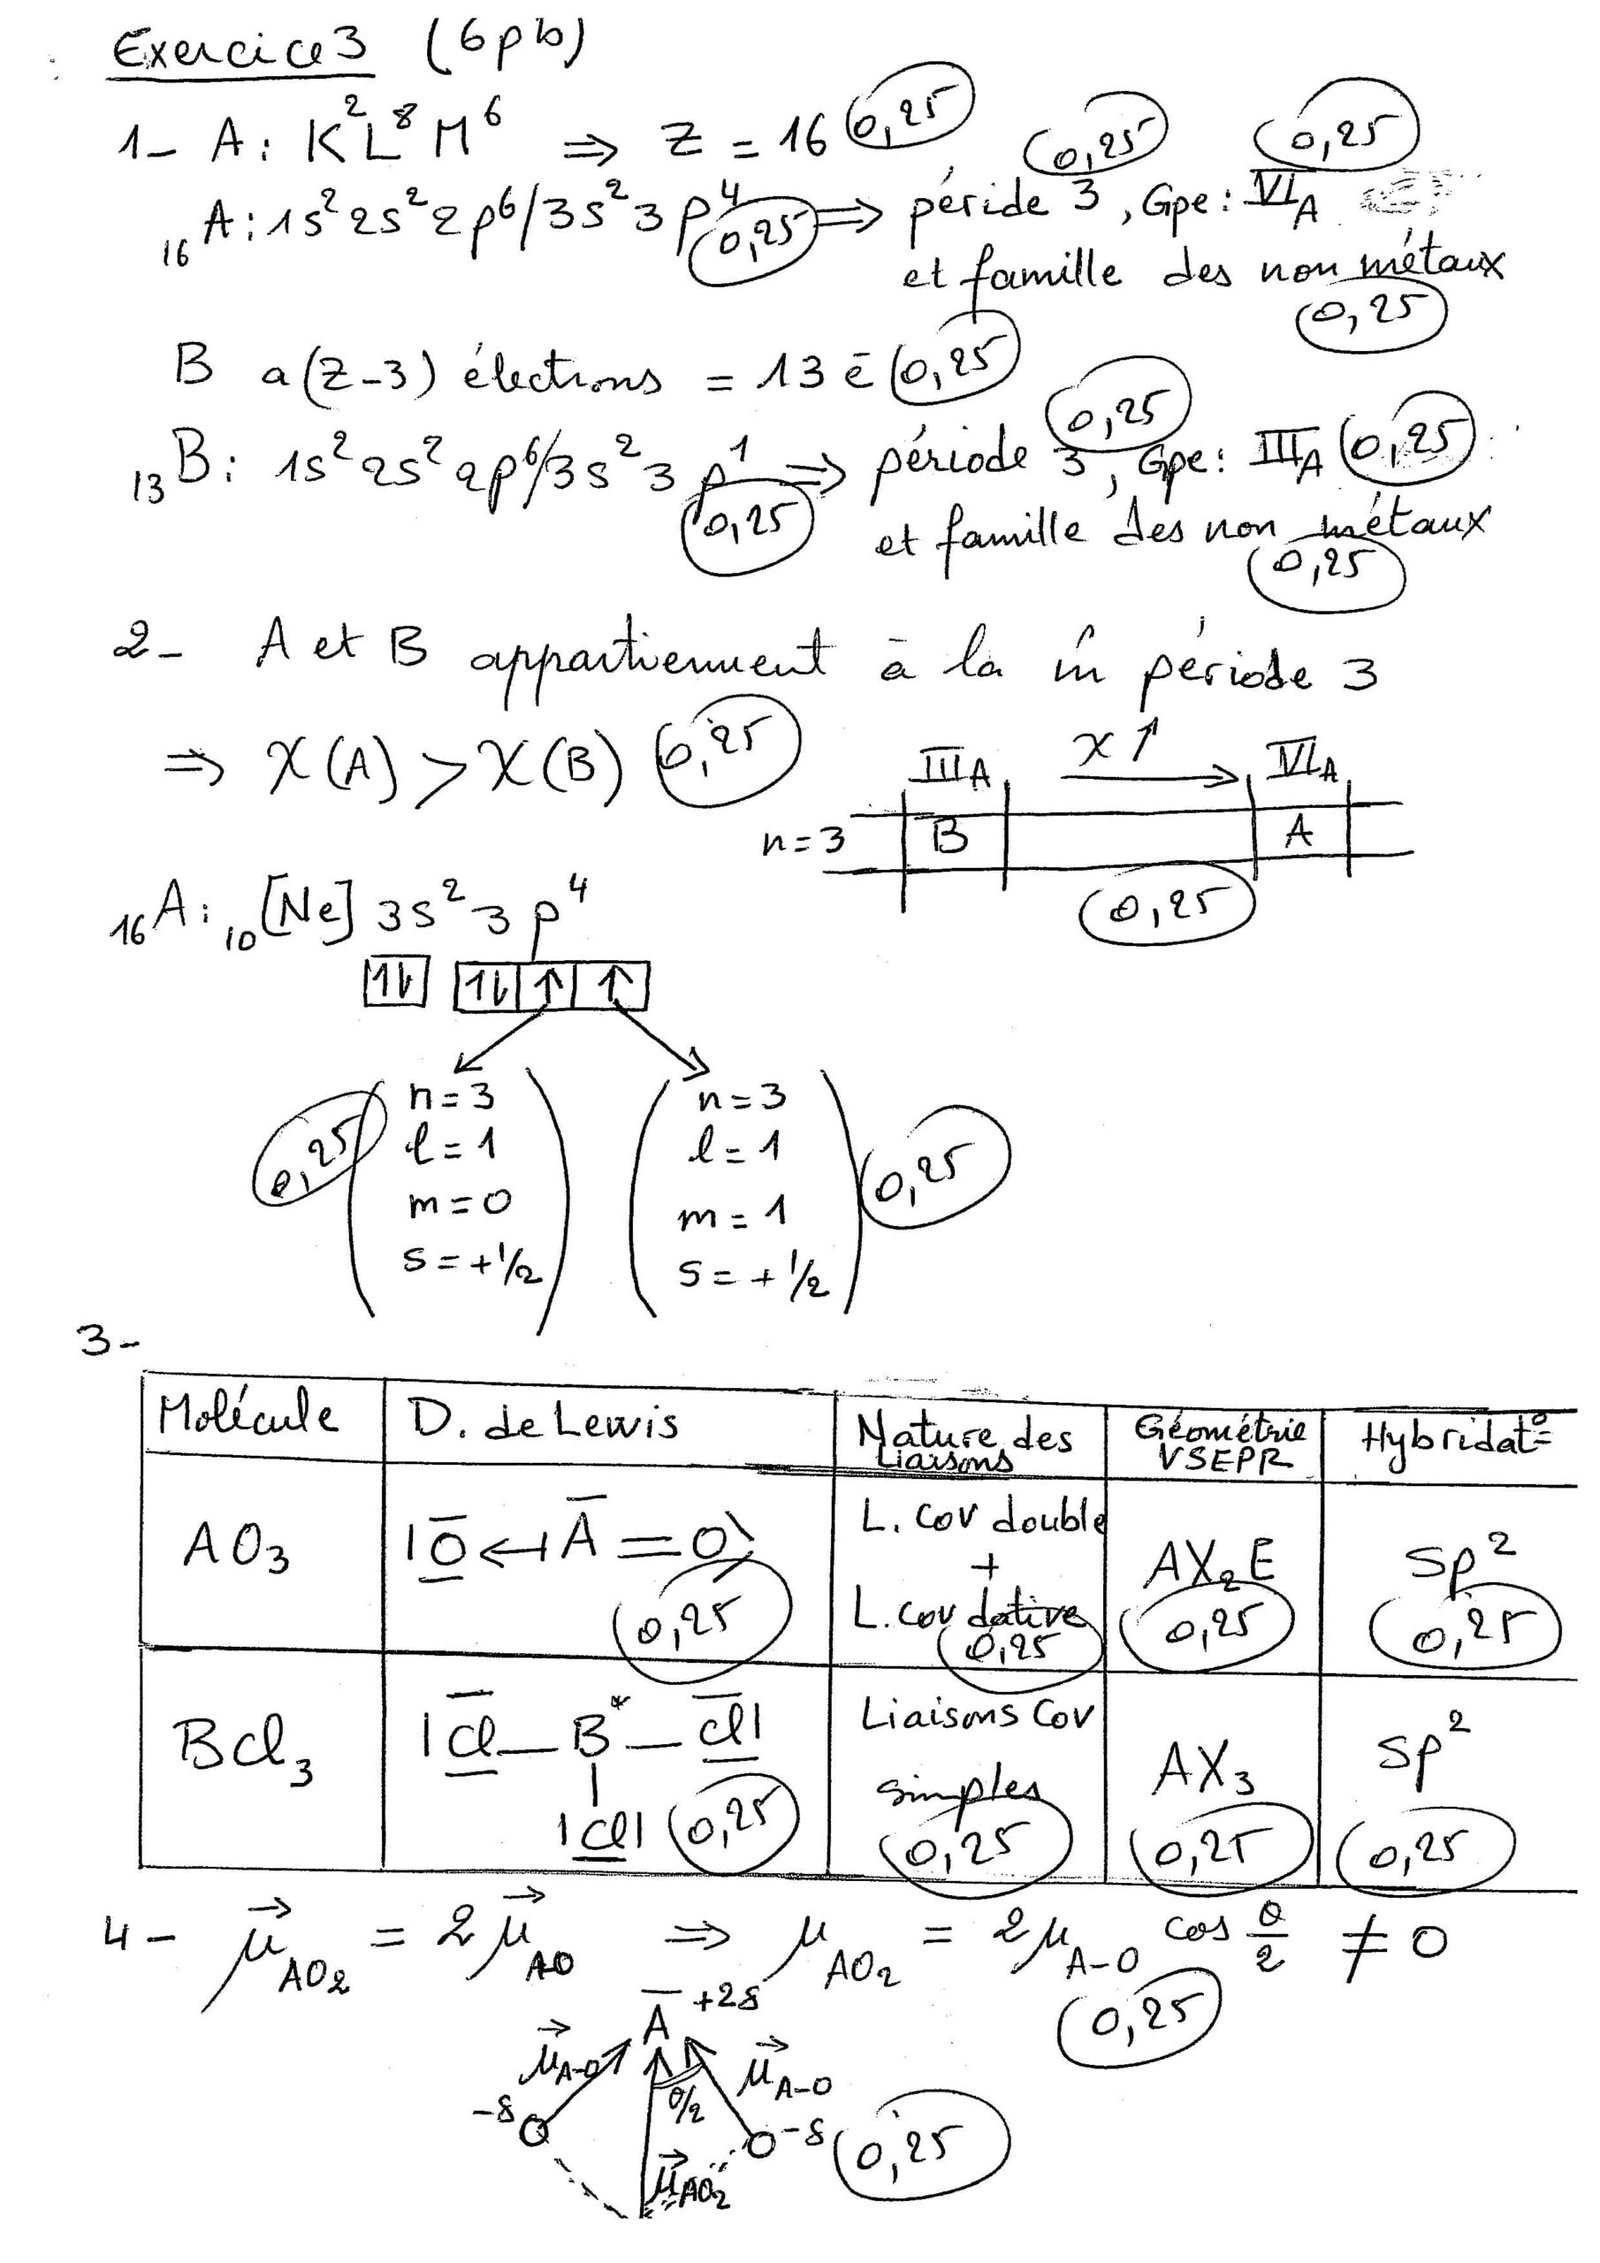 Exercice 3 (6 pts)
1- A : K²L⁸M⁶ ⇒ Z = 16 0,25 0,25 0,25
₁₆A : 1s² 2s² 2p⁶/3s² 3p⁴ 0,25 ⇒ péride 3, Gpe : VI_A
et famille des non métaux
0,25
B a (Z-3) élections = 13 ē 0,25
0,25
₁₃B : 1s² 2s² 2p⁶/3s² 3p¹ 0,25 ⇒ période 3, Gpe : III_A 0,25
et famille des non métaux
0,25
2- A et B appartiennent à la m̂ période 3
⇒ χ(A) > χ(B) 0,25
III_A χ↑ → VI_A
n=3 B A
0,25
₁₆A : ₁₀[Ne] 3s² 3p⁴
↑↓ ↑↓ ↑ ↑
0,25 n=3 n=3 0,25
l=1 l=1
m=0 m=1
s=+1/2 s=+1/2
3-
Molécule D. de Lewis Nature des Liaisons Géométrie VSEPR Hybridat°=
AO₃ |O ← A = O 0,25 L. cov double + L. cov dative 0,25 AX₂E 0,25 Sp² 0,25
BCl₃ |Cl — B* — Cl| |Cl| 0,25 Liaisons Cov simples 0,25 AX₃ 0,25 Sp² 0,25
4- μ⃗_AO₂ = 2 μ⃗_AO ⇒ μ_AO₂ = 2 μ_A-O cos θ/2 ≠ 0
0,25
A +2δ
μ⃗_A-O μ⃗_A-O
θ/2
-δ O O -δ 0,25
μ⃗_AO₂